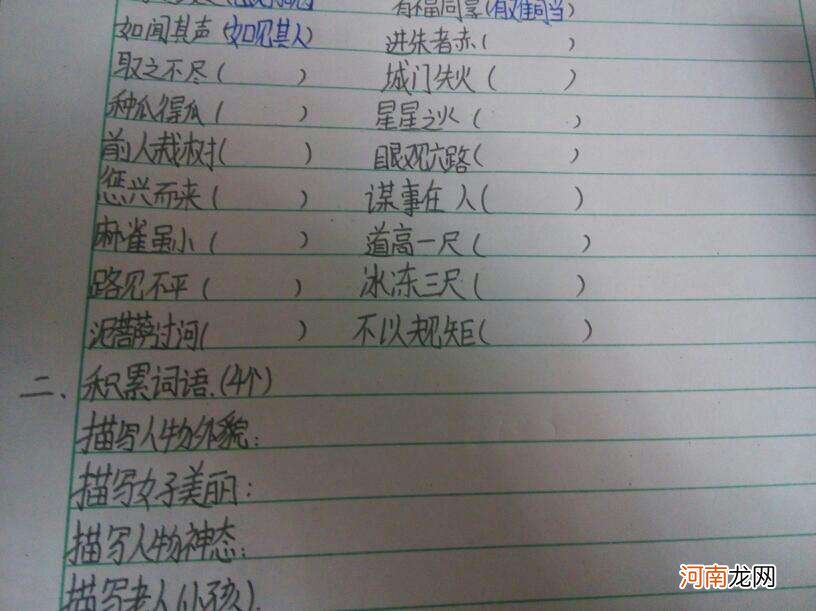 有福同享(有难同当)
如闻其声(如见其人) 进朱者赤( )
取之不尽( ) 城门失火( )
种瓜得瓜( ) 星星之火( )
前人栽树( ) 眼观六路( )
乘兴而来( ) 谋事在人( )
麻雀虽小( ) 道高一尺( )
路见不平( ) 冰冻三尺( )
泥菩萨过河( ) 不以规矩( )
二、积累词语.(4个)
描写人物外貌:
描写女子美丽:
描写人物神态:
描写老人(小孩)
河南龙网